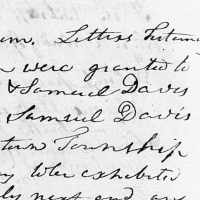 Letters Testamen
were granted to
& Samuel Davis
Samuel Davis
town Township
exhibited
ly next and any